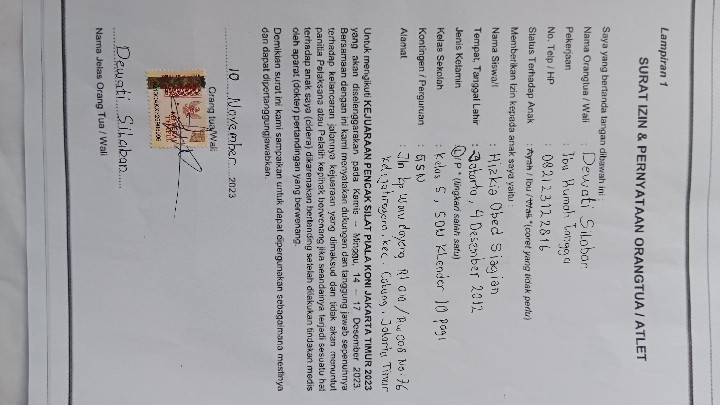 Lampiran 1
SURAT IZIN & PERNYATAAN ORANGTUA / ATLET
Saya yang bertanda tangan dibawah ini :
Nama Orangtua / Wali : Dewati Silaban
Pekerjaan : Ibu Rumah Tangga
No. Telp / HP : 082123122816
Status Terhadap Anak : Ayah / Ibu / Wali *(coret yang tidak perlu)
Memberikan Izin kepada anak saya yaitu :
Nama Siswa/i : Hizkia Obed Siagian
Tempat, Tanggal Lahir : Jakarta, 4 Desember 2012
Jenis Kelamin : L/P * (lingkari salah satu)
Kelas Sekolah : Kelas 5, SDN Klender 10 pagi
Kontingen / Perguruan : GSN
Alamat : Jln kp Wawu No.76
Kel. Jatinegara, kec. Cakung, Jakarta Timur
Untuk mengikuti KEJUARAAN PENCAK SILAT PIALA KONI JAKARTA TIMUR 2023
yang akan diselenggarakan pada Kamis – Minggu, 14 – 17 Desember 2023.
Bersamaan dengan ini kami menyatakan dukungan dan tanggung jawab sepenuhnya
terhadap kelancaran jalannya kejuaraan yang dimaksud dan tidak akan menuntut
panitia Pelaksana atau Pelatih kepihak berwenang jika seandainya terjadi sesuatu hal
terhadap anak saya (cidera) dikarenakan bertanding setelah dilakukan tindakan medis
oleh aparat (dokter) pertandingan yang berwenang.
Demikian surat ini kami sampaikan untuk dapat dipergunakan sebagaimana mestinya
dan dapat dipertanggungjawabkan.
10 November 2023
Orang tua/Wali
Dewati Silaban
Nama Jelas Orang Tua / Wali